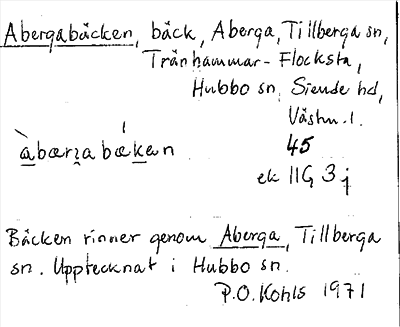 Abergabäcken, bäck, Aberga, Tillberga sn,
Tränhammar - Flocksta,
Hubbo sn, Siende hd,
Västm. l.
45
ek 11G 3j
Bäcken rinner genom Aberga, Tillberga
sn. Upptecknat i Hubbo sn.
P.O. Kohls 1971